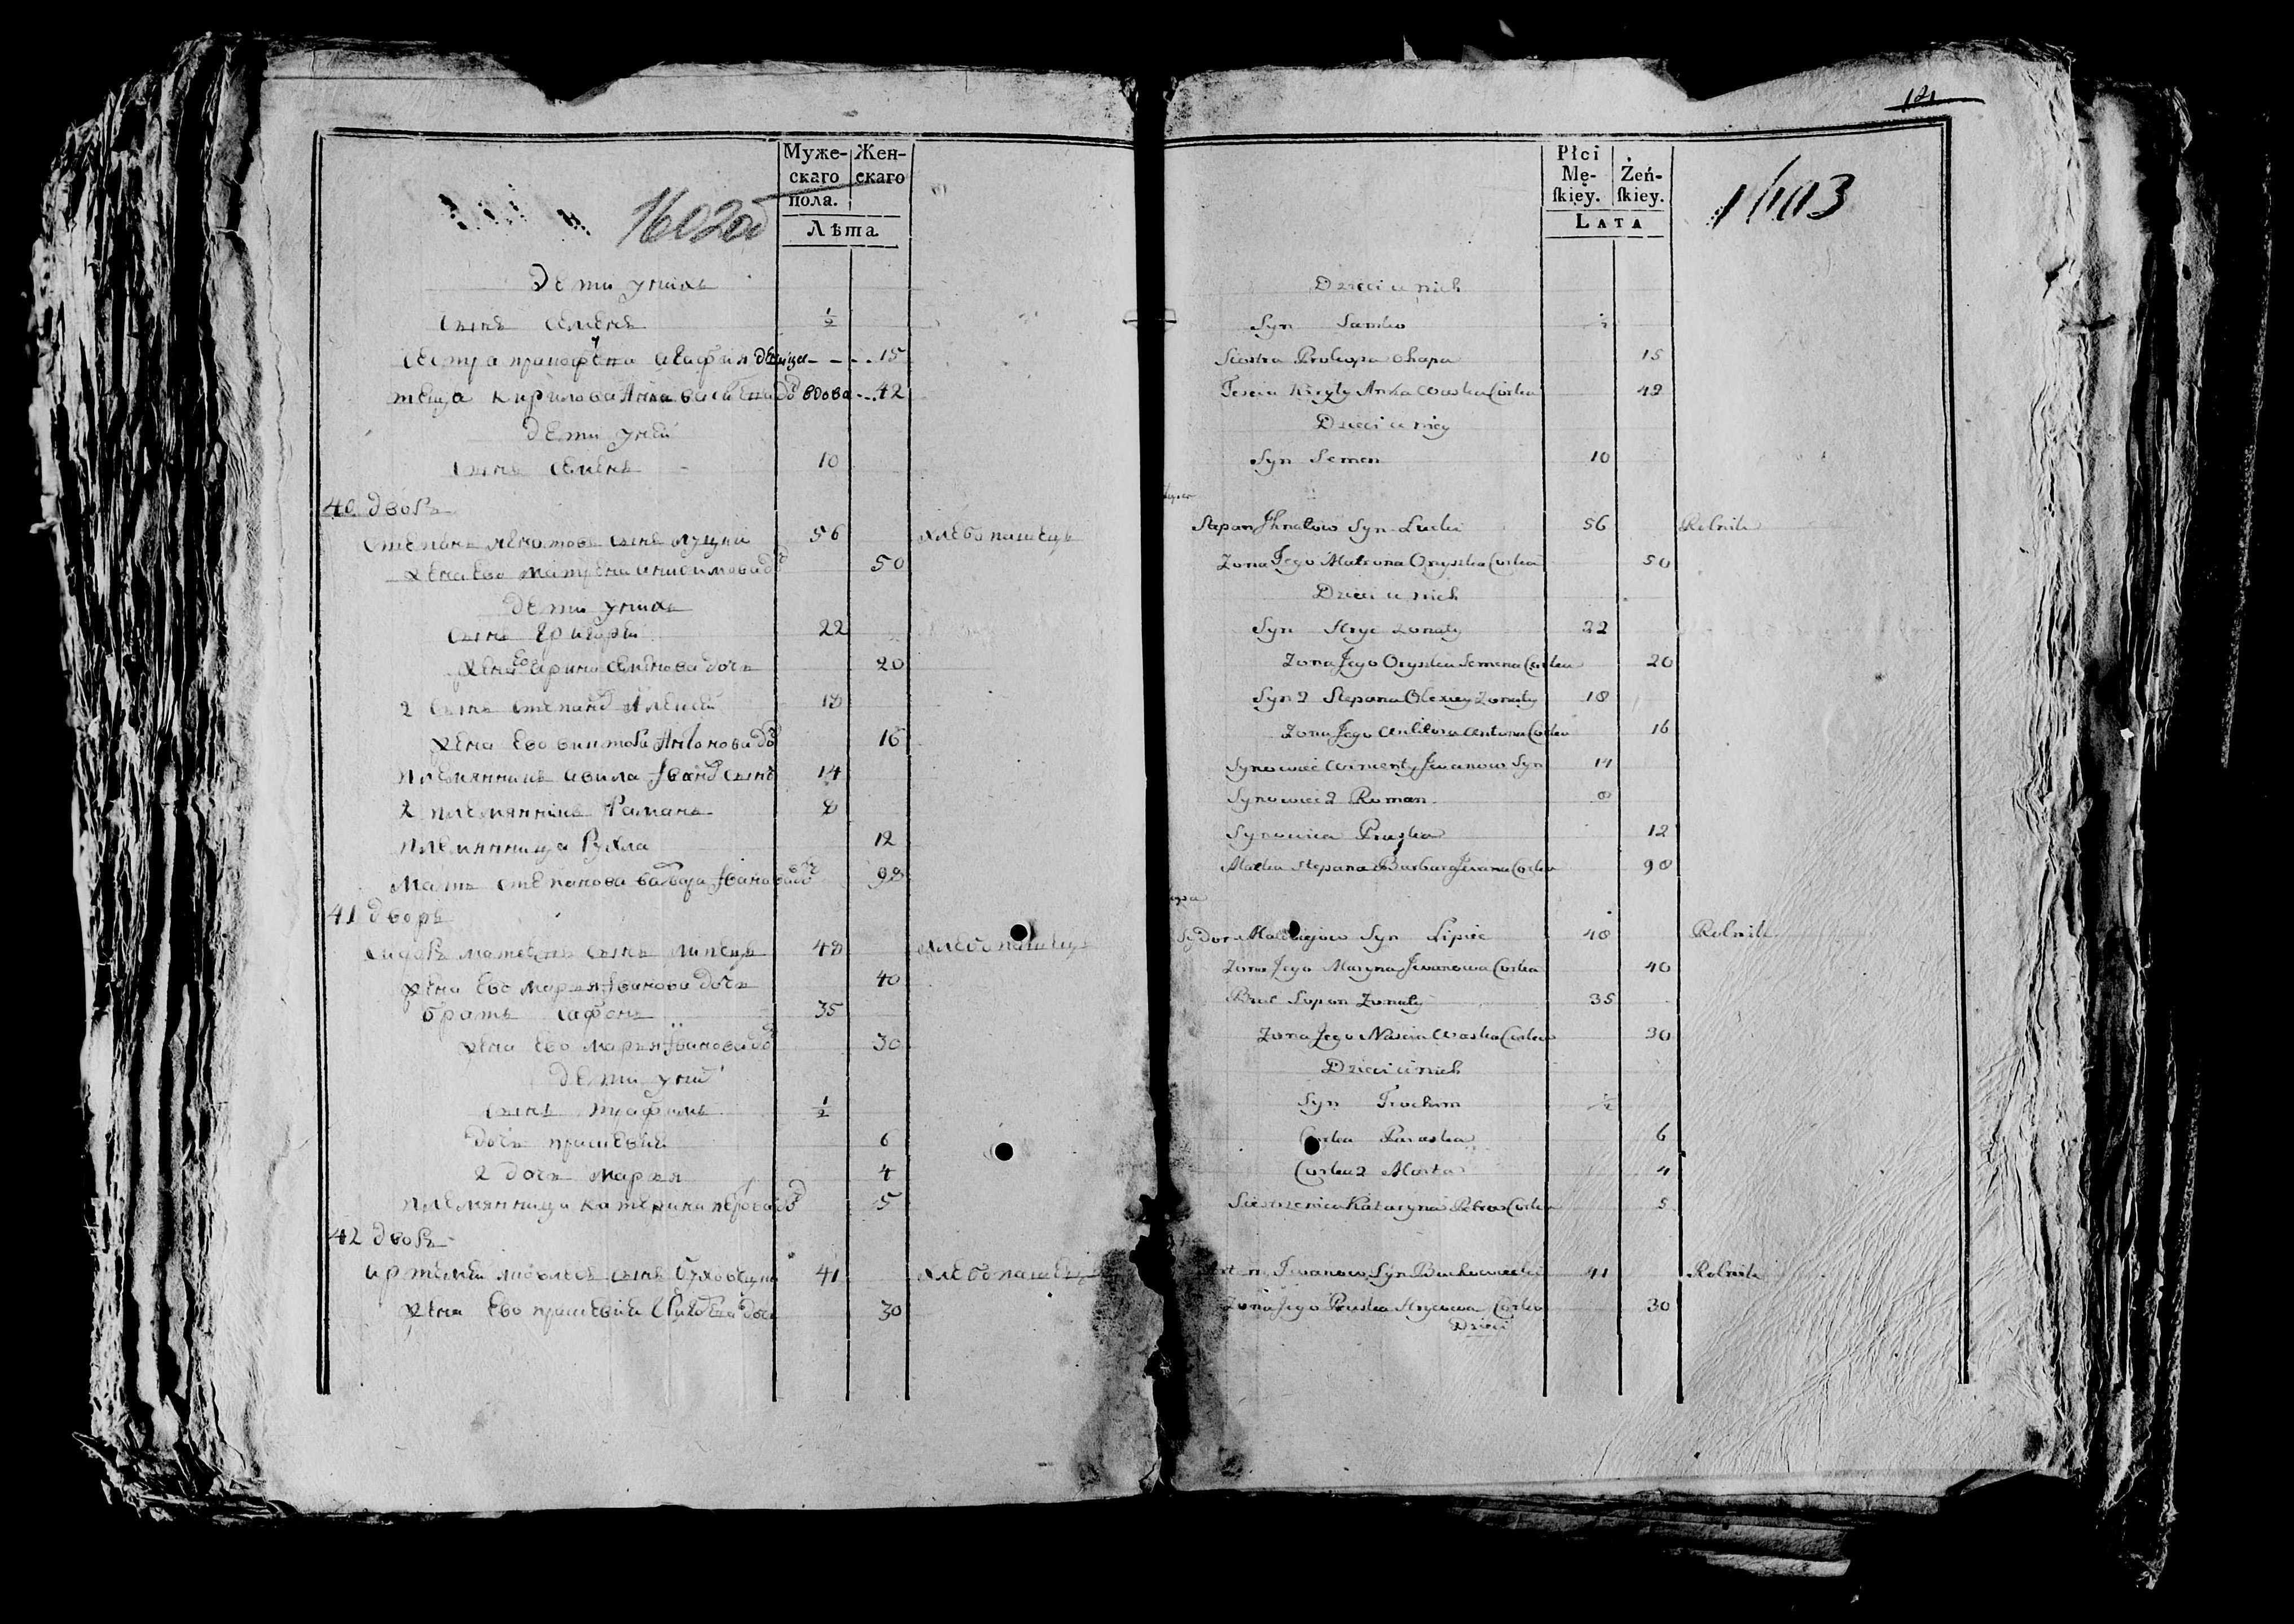 Муже-
скаго
пола.
Жен-
скаго
Лѣта
1602об
Дети унихъ
Сынъ Семенъ ½
Сестра Агафия девица - - - 15
теща Кирилова Анна вдова - - 42
дети уней
Сынъ Семенъ 10
40 дворъ
Степанъ Игнатовъ сынъ Луцки 56 хлебопашецъ
жена Ево Матрена Анисимова 50
Дети унихъ
Сынъ Григорей 22
жена ево Арина Семенова дочь 20
2 Сынъ Степана Алексей 18
жена Ево Антонова 16
Племянникъ Иванов Сынъ 14
2 племянникъ Раманъ 8
племянница 12
Мать Степанова Варвара Иванова 98
41 дворъ
Сидоръ Матвеевъ сынъ Липецъ 48 хлебопашецъ
жена Ево Марья Иванова дочь 40
братъ Сафонъ 35
жена Ево Марья Иванова 30
дети унихъ
Сынъ Трафимъ ½
дочь прасковия 6
2 дочь Марья 4
племянница Катерина петрова 5
42 дворъ
Артемий сынъ Буховецки 41 хлебопашецъ
жена Ево прасковия дочь 30
121
Płci
Mę-
ſkiey.
Żeń-
ſkiey.
LATA
Dzieci u nich
Syn Samko ½
Siostra Prokopa Ohapa 15
Teścia Kiryły Anna Waska Corka 42
Dzieci u niey
Syn Semen 10
Stepan Jhnatow Syn Lucki 56 Rolnik
Zona Jego Matrona Onyszka Corka 50
Dzieci u nich
Syn Hryc Zonaty 22
Zona Jego Oryszka Semena Corka 20
Syn 2 Stepana Olexiey Zonaty 18
Zona Jego Antona Corka 16
Synowiec Wincenty Jwanow Syn 14
Synowiec 2 Roman 8
Synowica Pruska 12
Matka Stepana Barbara Jwana Corka 98
Sydor Maciejow Syn Lipiec 48 Rolnik
Zona Jego Maryna Jwanowa Corka 40
Brat Sopon Zonaty 35
Zona Jego Nascia Waska Corka 30
Dzieci u nich
Syn Trochim ½
Corka Paraska 6
Corka 2 Marta 4
Siestrzenica Kataryna Petra Corka 5
Jwanow Syn Buchowiecki 41 Rolnik
Zona Jego Pruska Hrycowa Corka 30
Dzieci